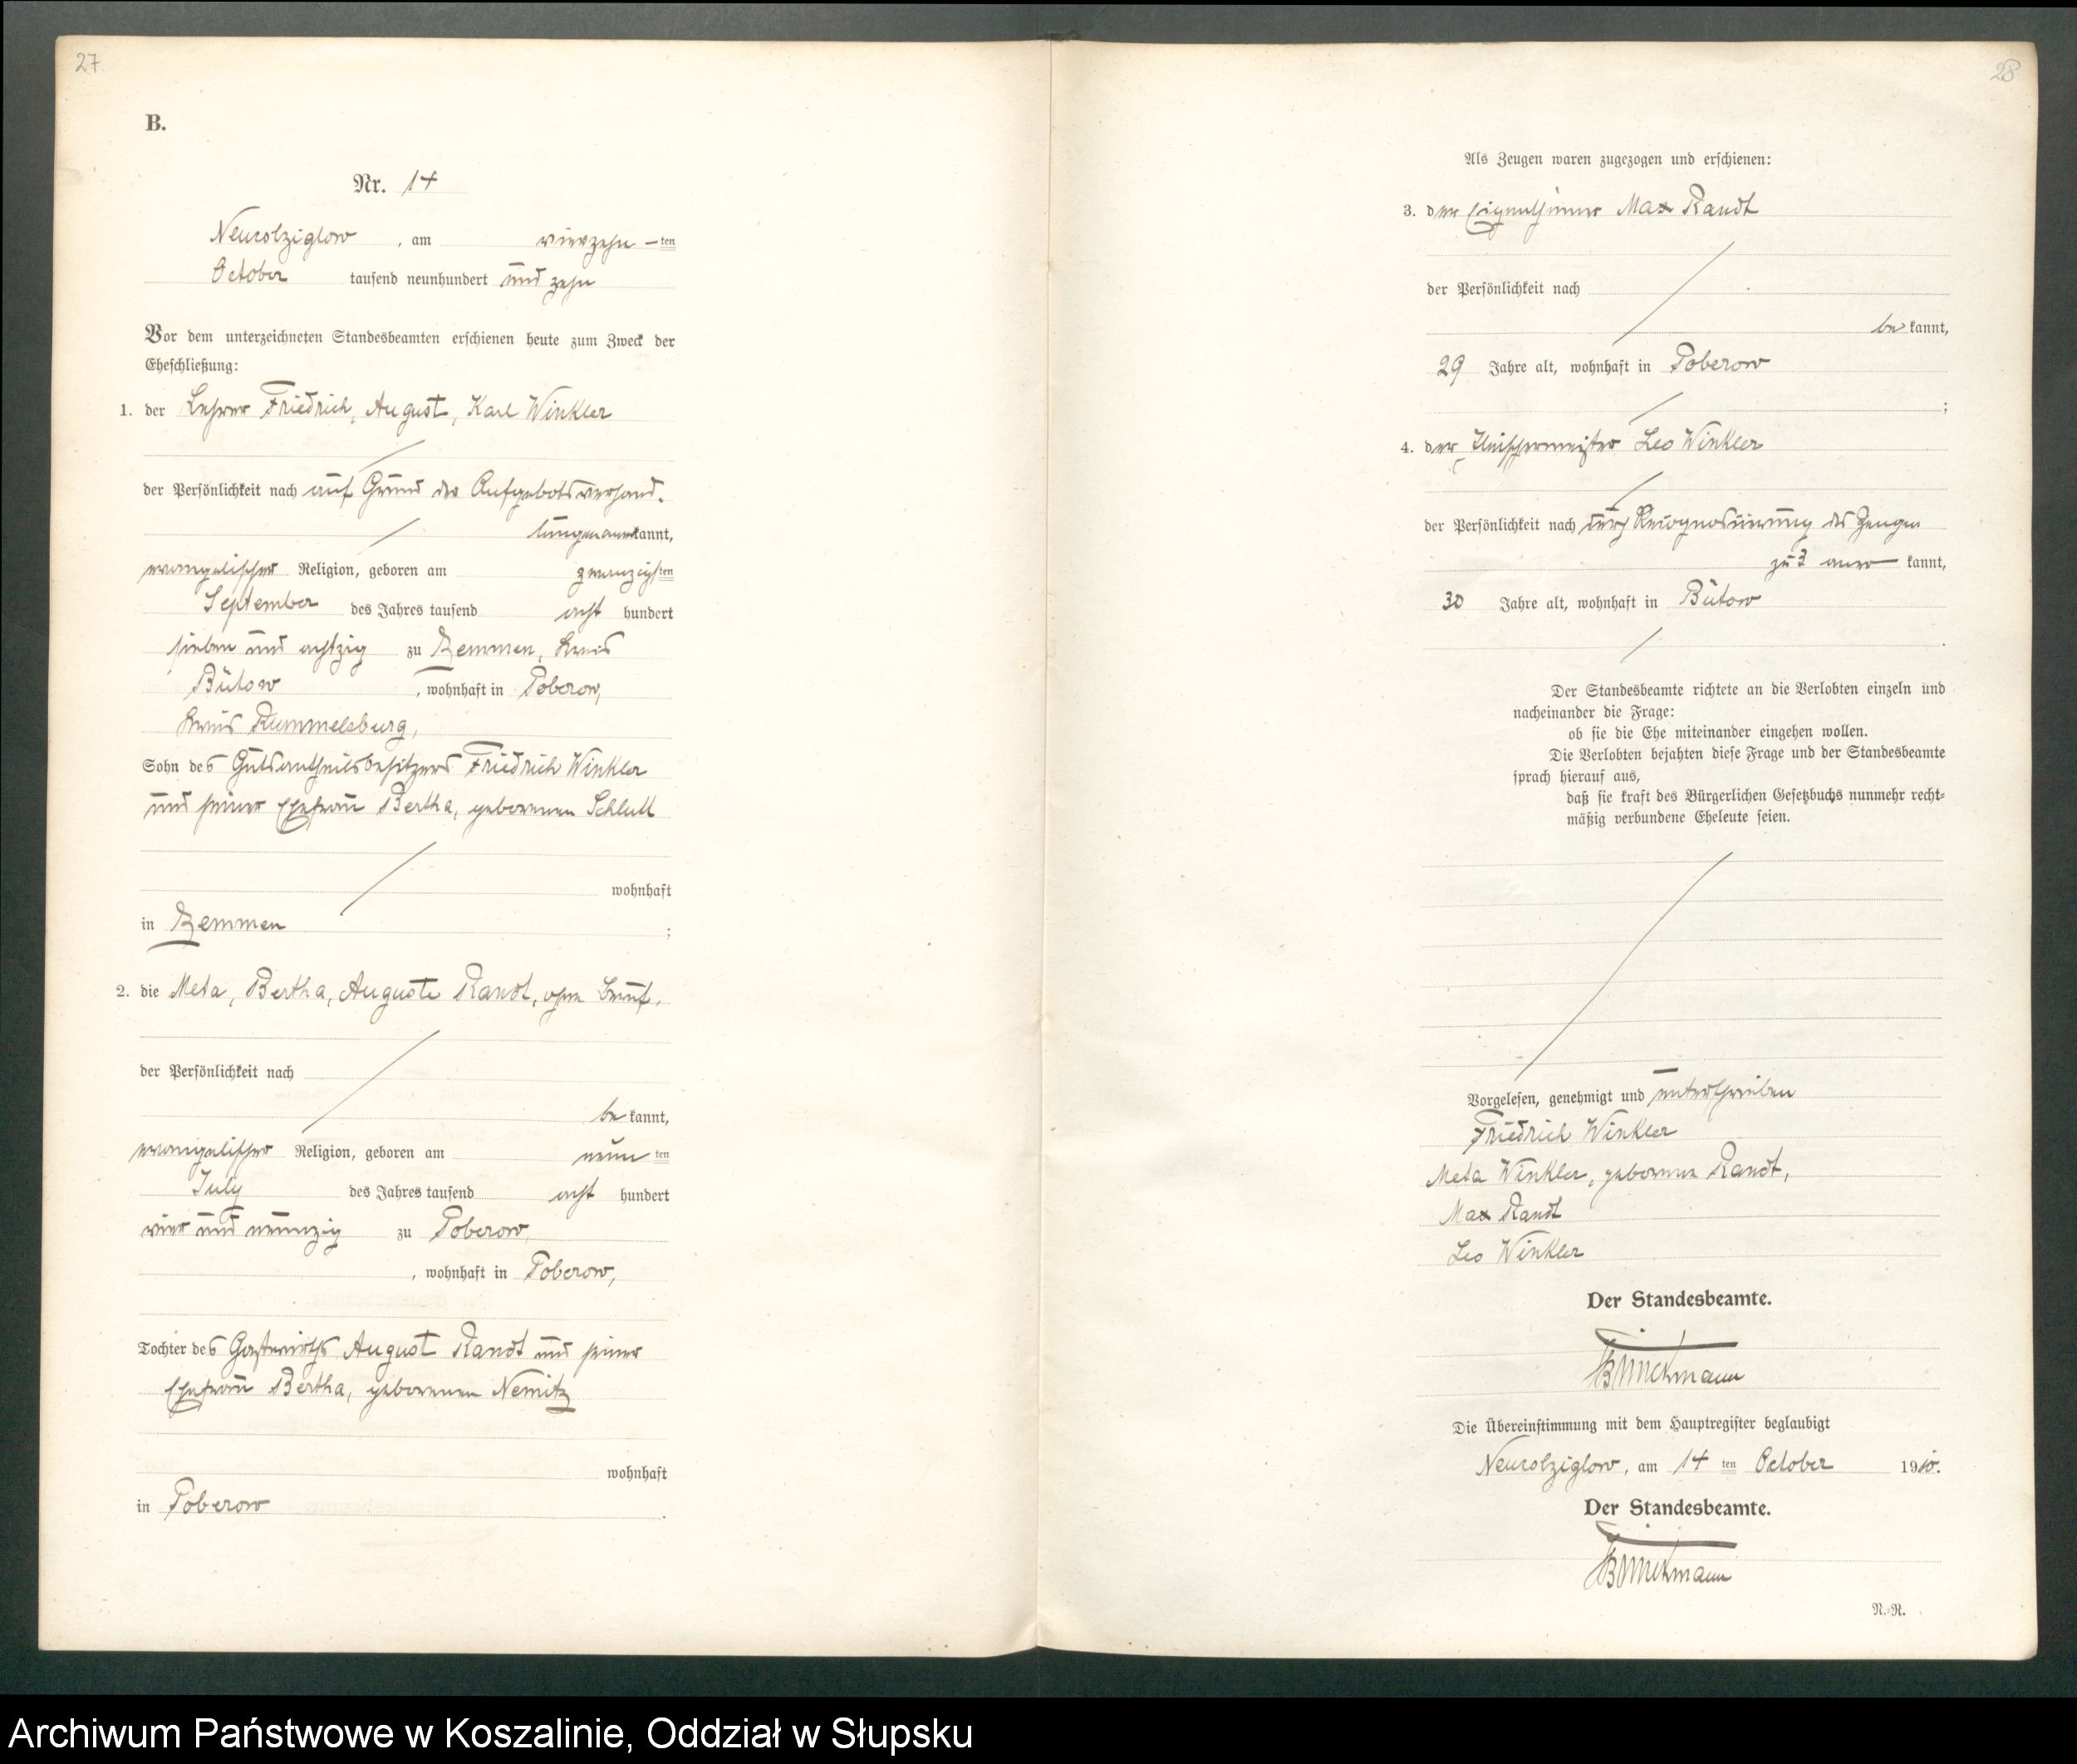 27
B.
Nr. 14
Neukolziglow, am vierzehn-ten
October tausend neunhundert und zehn
Vor dem unterzeichneten Standesbeamten erschienen heute zum Zweck der
Eheschließung:
1. der Lehrer Friedrich, August, Karl Winkler
der Persönlichkeit nach auf Grund der Aufgebotsverhand-
lungen anerkannt,
evangelischer Religion, geboren am zwanzigsten
September des Jahres tausend acht hundert
sieben und achtzig zu Zemmen, Kreis
Bütow, wohnhaft in Poberow,
Kreis Rummelsburg,
Sohn des Gutsantheilsbesitzers Friedrich Winkler
und seiner Ehefrau Bertha, geborenen Schlutt
wohnhaft
in Zemmen;
2. die Meta, Bertha, Auguste Randt, ohne Beruf,
der Persönlichkeit nach
be kannt,
evangelischer Religion, geboren am neun ten
July des Jahres tausend acht hundert
vier und neunzig zu Poberow,
, wohnhaft in Poberow,
Tochter des Gastwirths August Randt und seiner
Ehefrau Bertha, geborenen Nemitz
wohnhaft
in Poberow.
28
Als Zeugen waren zugezogen und erschienen:
3. der Eigenthümer Max Randt
der Persönlichkeit nach
be kannt,
29 Jahre alt, wohnhaft in Poberow
;
4. der Leo Winkler
der Persönlichkeit nach durch Recognoscirung des Zeugen
zu 3 aner kannt,
30 Jahre alt, wohnhaft in Bütow
.
Der Standesbeamte richtete an die Verlobten einzeln und
nacheinander die Frage:
ob sie die Ehe miteinander eingehen wollen.
Die Verlobten bejahten diese Frage und der Standesbeamte
sprach hierauf aus,
daß sie kraft des Bürgerlichen Gesetzbuchs nunmehr recht-
mäßig verbundene Eheleute seien.
Vorgelesen, genehmigt und unterschrieben
Friedrich Winkler
Meta Winkler, geborene Randt,
Max Randt
Leo Winkler
Der Standesbeamte.
Die Übereinstimmung mit dem Hauptregister beglaubigt
Neukolziglow, am 14 ten October 1910.
Der Standesbeamte.
N.-R.
Archiwum Państwowe w Koszalinie, Oddział w Słupsku